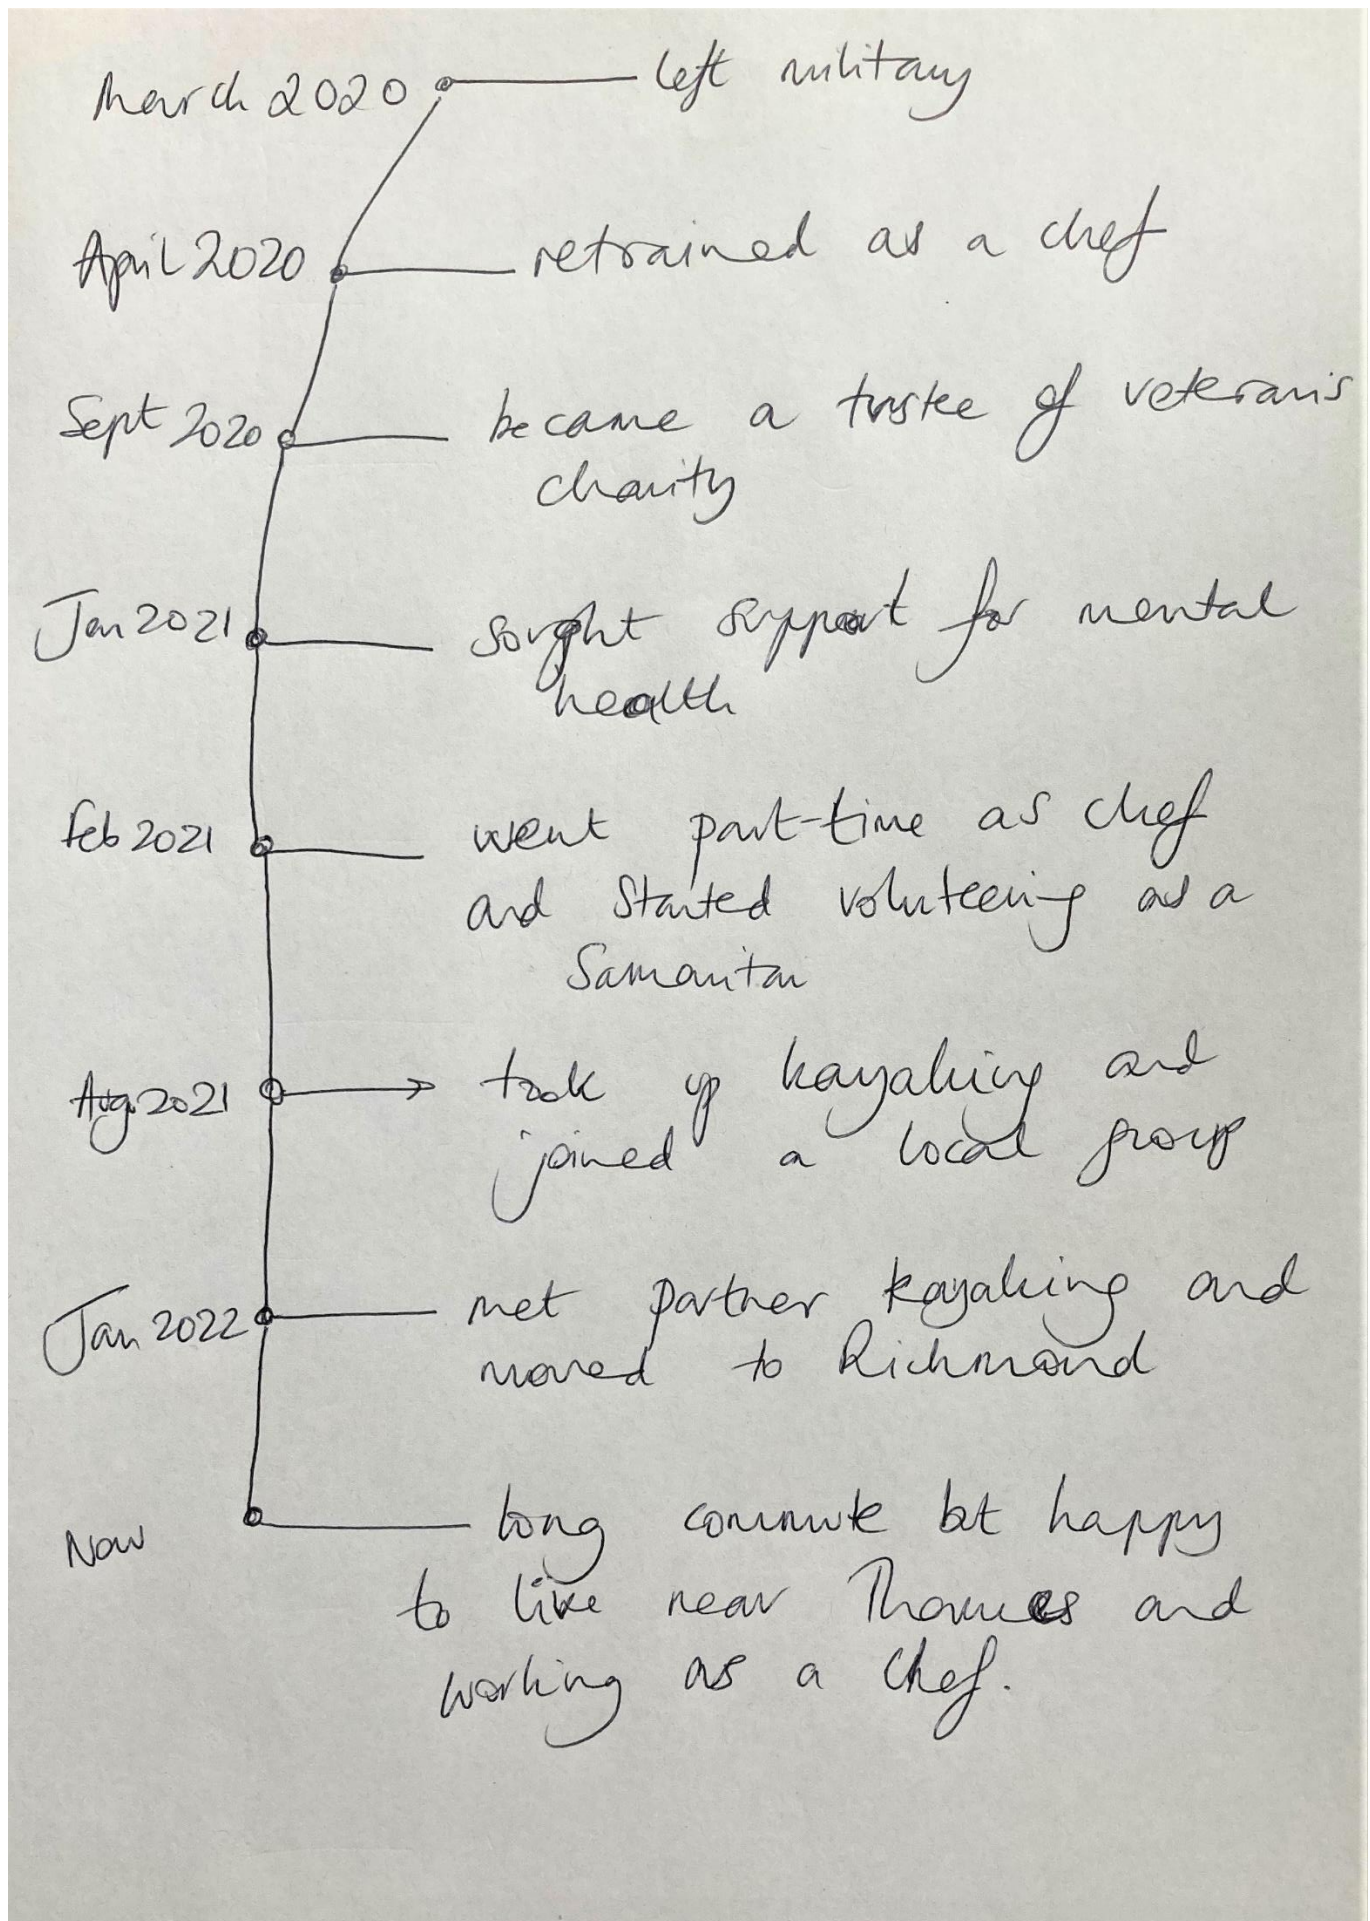 March 2020 left military
April 2020 retrained as a chef
Sept 2020 became a trustee of veteran's
charity
Jan 2021 sought support for mental
health
Feb 2021 went part-time as chef
and Started volunteering as a
Samaritan
Aug 2021 took up kayaking and
joined a local group
Jan 2022 met partner kayaking and
moved to Richmond
Now long commute but happy
to live near Thames and
working as a chef.